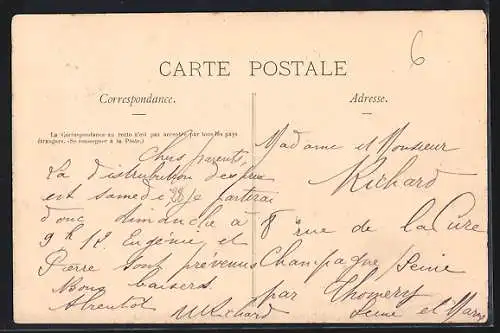 6
CARTE POSTALE
Correspondance.
La Correspondance au recto n'est pas acceptée par tous les pays
étrangers. (Se renseigner à la Poste.)
Chers parents,
La distribution des prix
est samedi 28 je partirai
donc dimanche à
9h 12. Eugénie et
Pierre sont prévenus
Bons baisers
A bientôt
Richard
Adresse.
Madame et Monsieur
Richard
8 rue de la Cure
Champagne / Seine
par Thomery
Seine et Marne